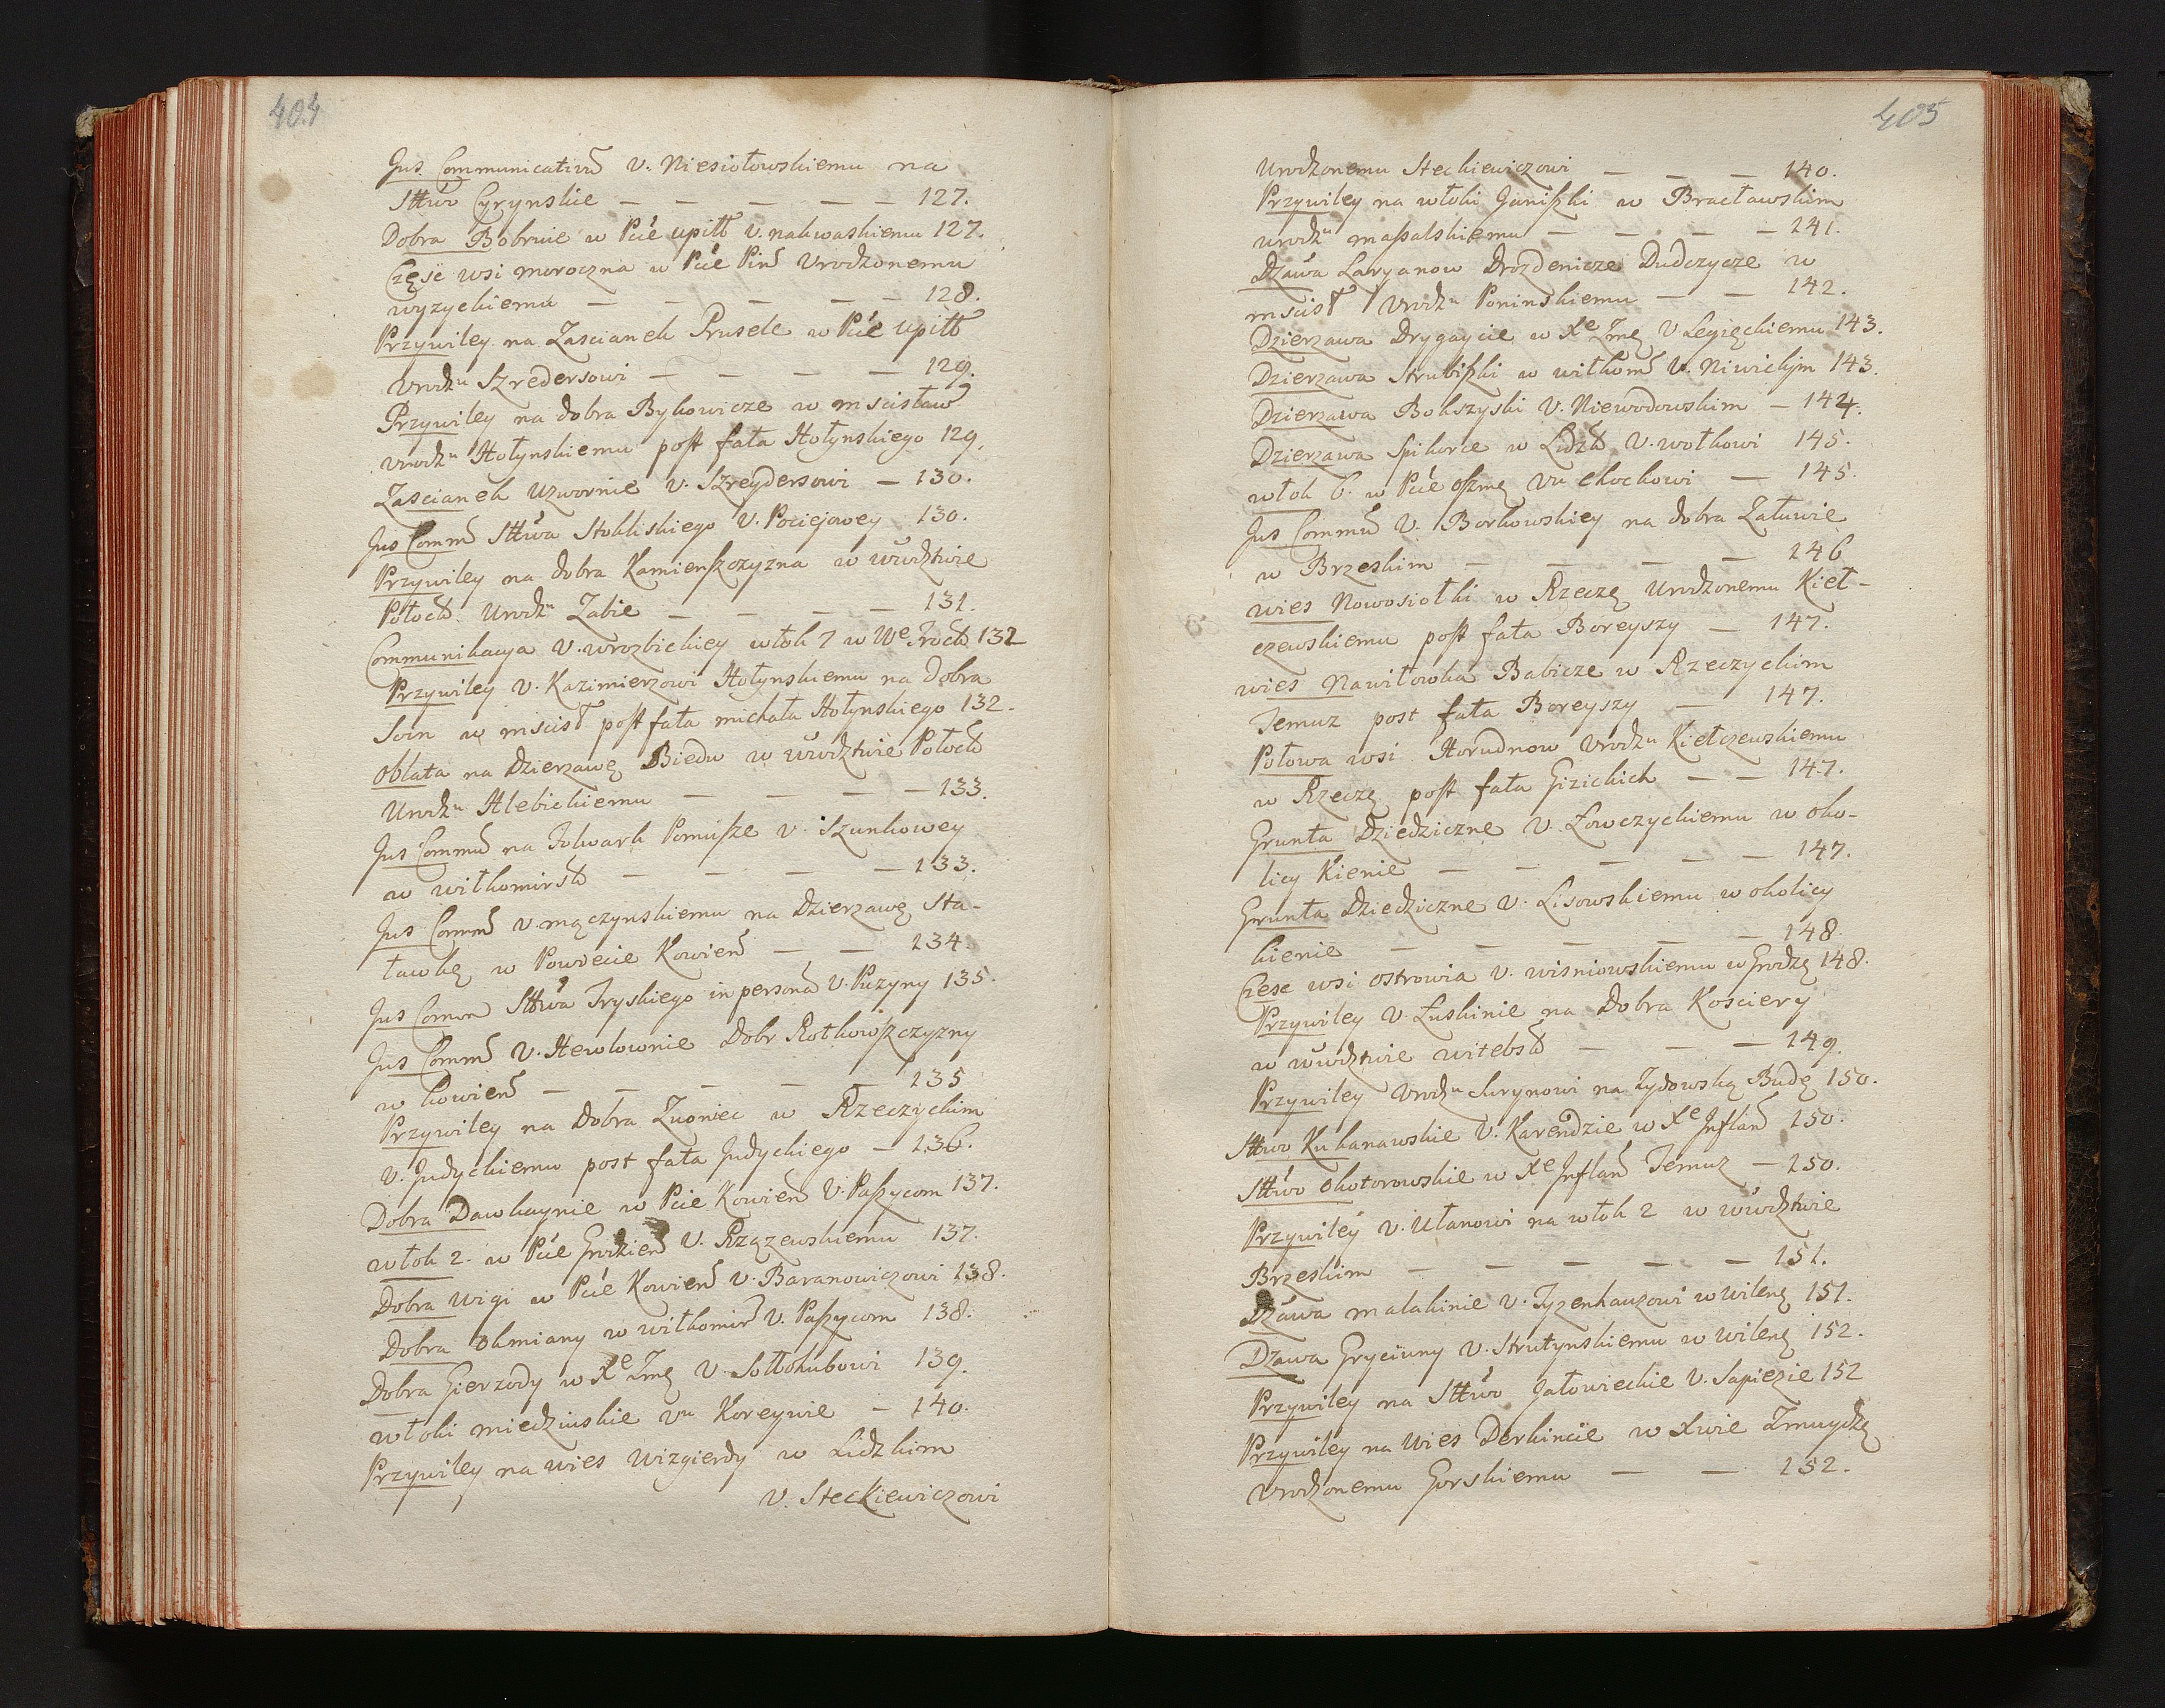 404
Jus Communicativū V. Niesiołowskiemu na
Sttwo Cyrynskie — — — — — 127.
Dobra Bobrwie w Pcie upitt V. nakwaskiemu 127.
Częsc wsi moroczna w Pcie Piń Vrodzonemu
wyzyckiemu — — — — — 128.
Przywiley na Zascianek Prusele w Pcie upitt
Vrodzu Szredersowi — — — — 129.
Przywiley na dobra Bykowicze w mscisław
Vrodzu Hołynskiemu post fata Hołynskiego 129.
Zascianek Uzwornie V. Szreydersowi — 130.
Jus Comm Sttwa Stokliskiego V. Pociejowey 130.
Przywiley na dobra Kamienszczyzna w wwdztwie
Połock Urodzu Zabie — — — — 131.
Communikacya V. wrozbickiey włok 7 w We Trock 132
Przywiley V. Kazimierzowi Hołynskiemu na Dobra
Soin w mscisł post fata michała Hołynskiego 132.
Oblata na Dzierzawę Biedu w wwdztwie Połock
Urodzu Hlebickiemu — — — — 133.
Jus Commu na Folwark Pomusze V. Szunkowey
w wiłkomirsk — — — — 133.
Jus Comm V. mączynskiemu na Dzierzawę Sta-
ławkę w Powiecie Kowień — — 134.
Jus Comm Sttwa Tryskiego in personā V. Puzyny 135.
Jus Comm V. Hewlownie Dobr Rotkowszczyzny
w kowień — — — — — 135
Przywiley na Dobra Zwoniec w Rzeczyckim
V. Judyckiemu post fata Judyckiego — 136.
Dobra Dawkaynie w Pcie Kowień V. Paszycom 137.
włok 2. w Pcie Grodzień V. Rzązewskiemu 137.
Dobra Wigi w Pcie Kowień V. Baranowiczowi 138.
Dobra okmiany w wiłkomir V. Paszycom 138.
Dobra Gierzody w Xe Zmę V. Sołłohubowi 139.
włoki miedzinskie Vu Koreywie — 140.
Przywiley na wies Wizgierdy w Lidzkim
V. Steckiewiczowi
405
Urodzonemu Steckiewiczowi — — — 140.
Przywiley na włoki Guniszki w Bracławskim
urodzu massalskiemu — — — — 141.
Dzawa Laryanow Drozdenicze Dudczycze w
mscisł Vrodzu Poninskiemu — — 142.
Dzierzawa Drygaycie w Xe Zmę V. Legięckiemu 143.
Dzierzawa Strubiszki w wiłkom V. Niwickim 143.
Dzierzawa Bokszyski V. Niewodowskim — 144.
Dzierzawa Spikorce w Lidzk V. wołkowi 145.
włok 6. w Pcie oszmę Vu Chockowi — 145.
Jus Commu V. Borkowskiey na dobra Załuwie
w Brzeskim — — — — 146
wies Nowosiołki w Rzeczę Urodzonemu Kieł-
czewskiemu post fata Boreyszy — 147.
wies Nawiłowka Babicze w Rzeczyckim
Temuz post fata Boreyszy — 147.
Połowa wsi Horudnow Vrodzu Kiełczewskiemu
w Rzeczę post fata Gizickich — — 147.
Grunta Dziedziczne V. Łowczyckiemu w oko-
licy Kienie — — — — — 147.
Grunta Dziedziczne V. Lisowskiemu w okolicy
kienie — — — — — 148.
Częsc wsi ostrowia V. wisniowskiemu w Grodzę 148.
Przywiley V. Łuskinie na Dobra Kosciery
w wwdztwie witebsk — — — 149.
Przywiley Vrodzu Surynowi na Zydowską Budę 150.
Sttwo Kukanawskie V. Karendzie w Xe Inflan 150.
Sttwo okotorowskie w Xe Inflan Temuz — 150.
Przywiley V. Ułanowi na włok 2 w wwdztwie
Brzeskim — — — — — 151.
Dzawa malakinie V. Tyzenhauzowi w wilenę 151.
Dzawa Gryciuny V. Strutynskiemu w wilenę 152.
Przywiley na Sttwo Jałowieckie V. Sapiezie 152
Przywiley na Wies Derkincie w Xwie Zmuydzę
Vrodzonemu Gorskiemu — — 152.